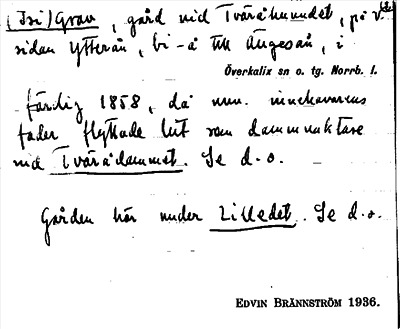 (Isi)Grav, gård vid Tväråhuvudet, på v.
sidan Ytterån, bi-å till Ängesån, i
Överkalix sn o. tg. Norrb. l.
färdig 1858, då nuv. innehavarens
fader flyttade hit som dammvaktare
vid Tväråдammet. Se d.o.
Gården hör under Lilledet. Se d.o.
EDVIN BRÄNNSTRÖM 1936.